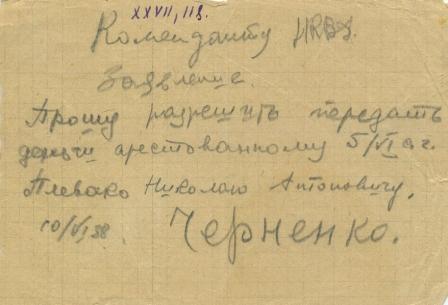 XXVII, 118.
Комендашту НКВД.
Заявление.
Прошу разрешить передать
деньги арестованному 5/VI с.г.
Плевако Николаю Антоновичу,
10/VI, 38. Черненко.